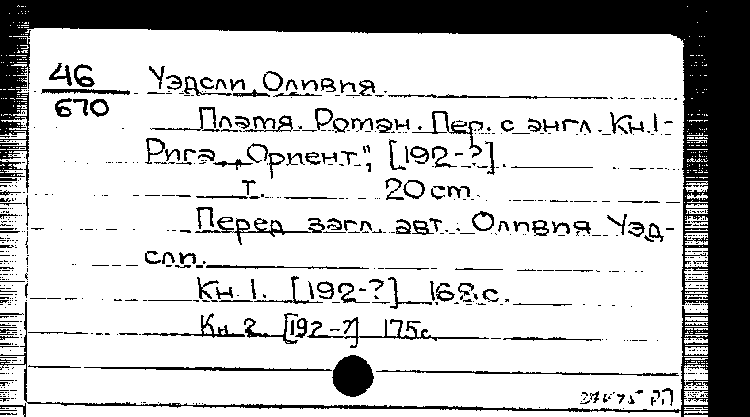 46
670
Уэдсли, Оливия.
Платя. Роман. Пер. с англ. Кн. 1-
Рига, „Ориент", [192-?].
т. 20 cm.
Перед загл. авт.: Оливия Уэд-
сли.
Кн. 1. [192-?] 168.с.
Кн. 2. [192-?] 175 с.